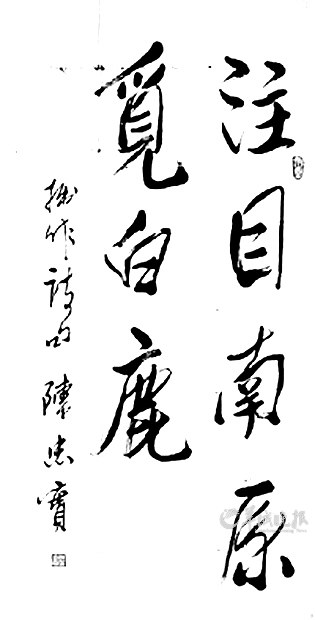 注目南原
覓白鹿
拙作詩句 陳忠實